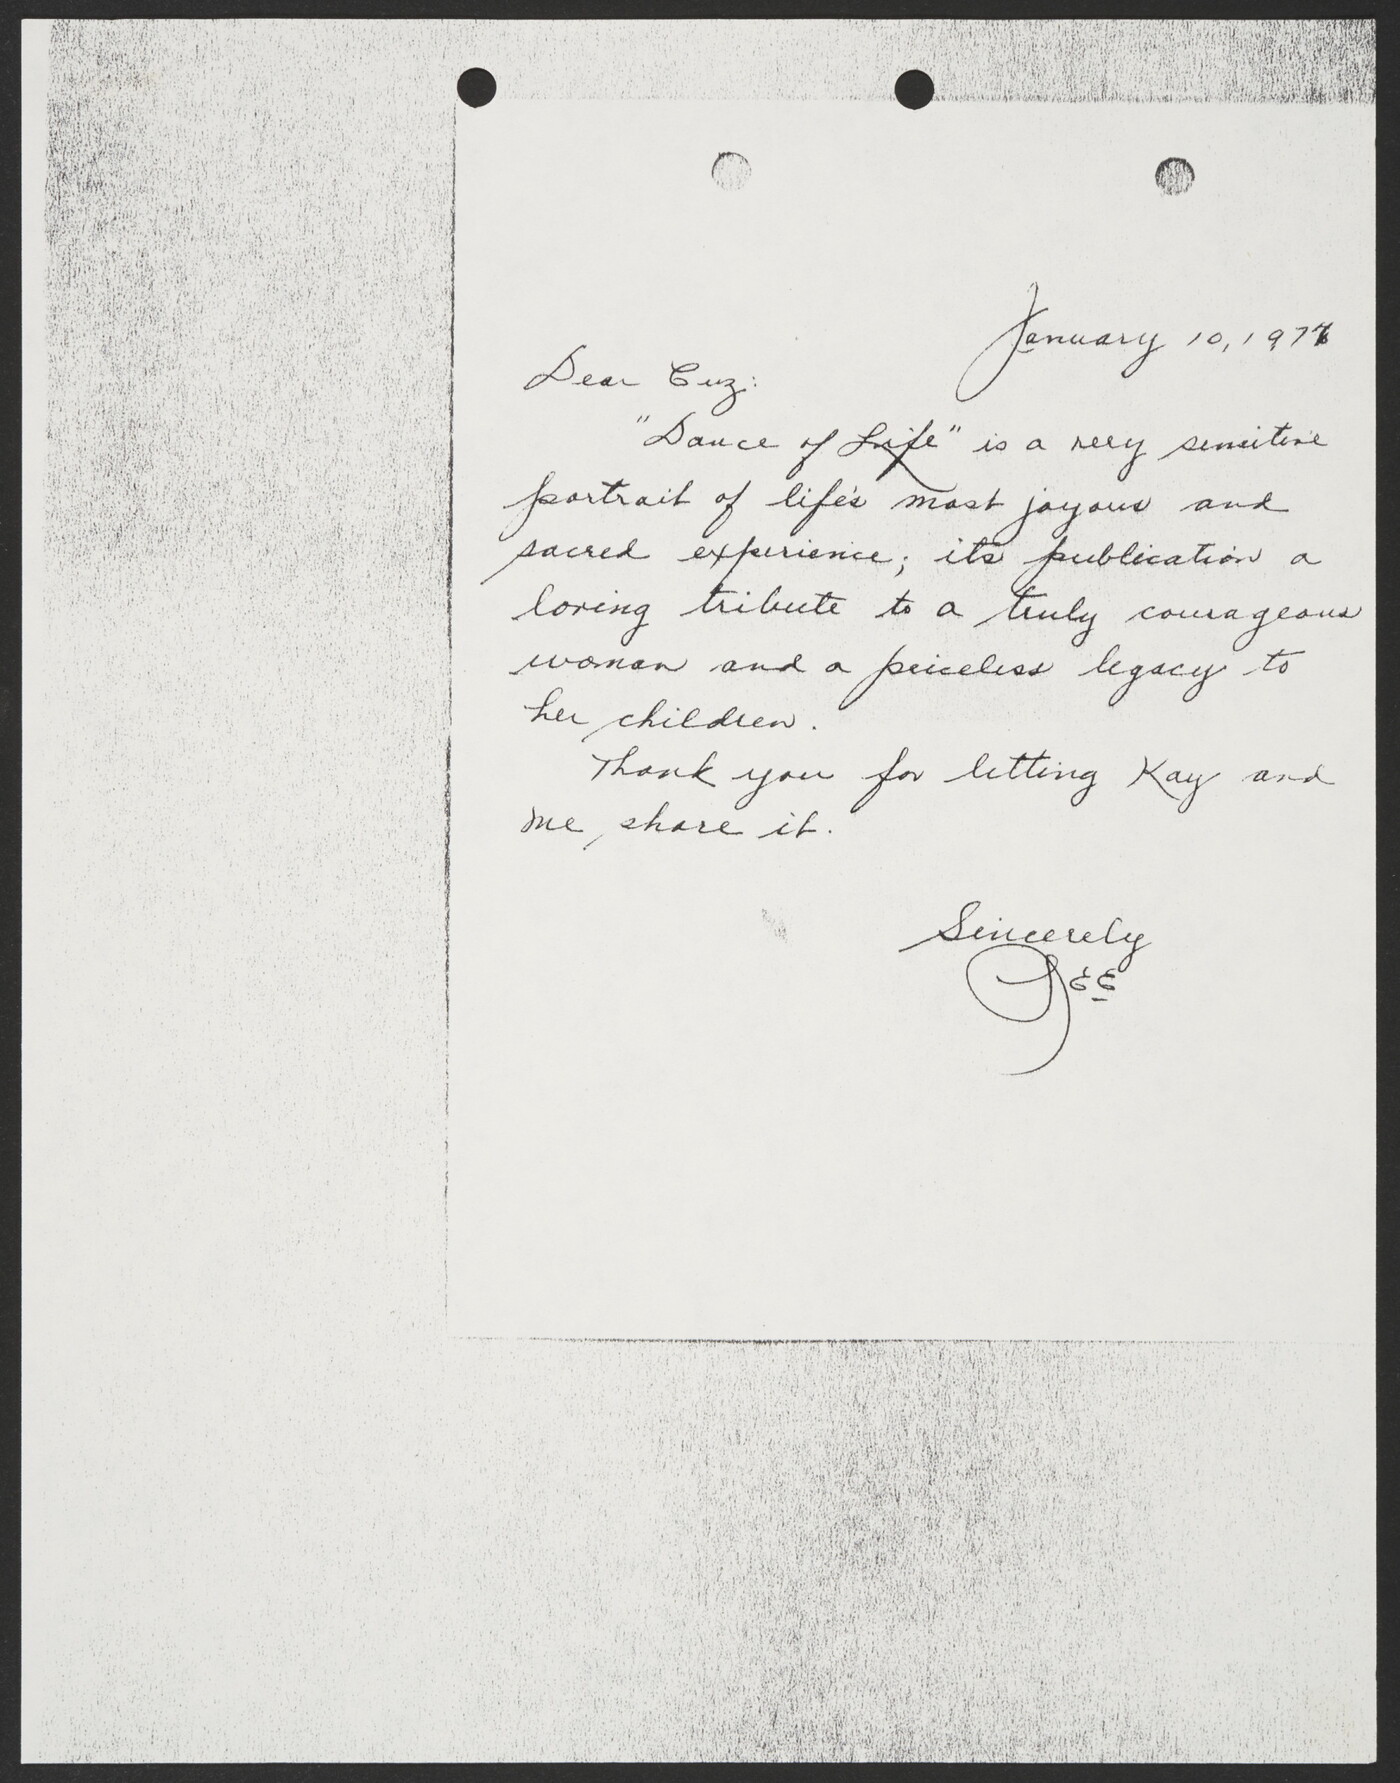 January 10, 1977
Dear Cuz:
"Dance of Life" is a very sensitive
portrait of life's most joyous and
sacred experience; its publication a
loving tribute to a truly courageous
woman and a priceless legacy to
her children.
Thank you for letting Kay and
me, share it.
Sincerely